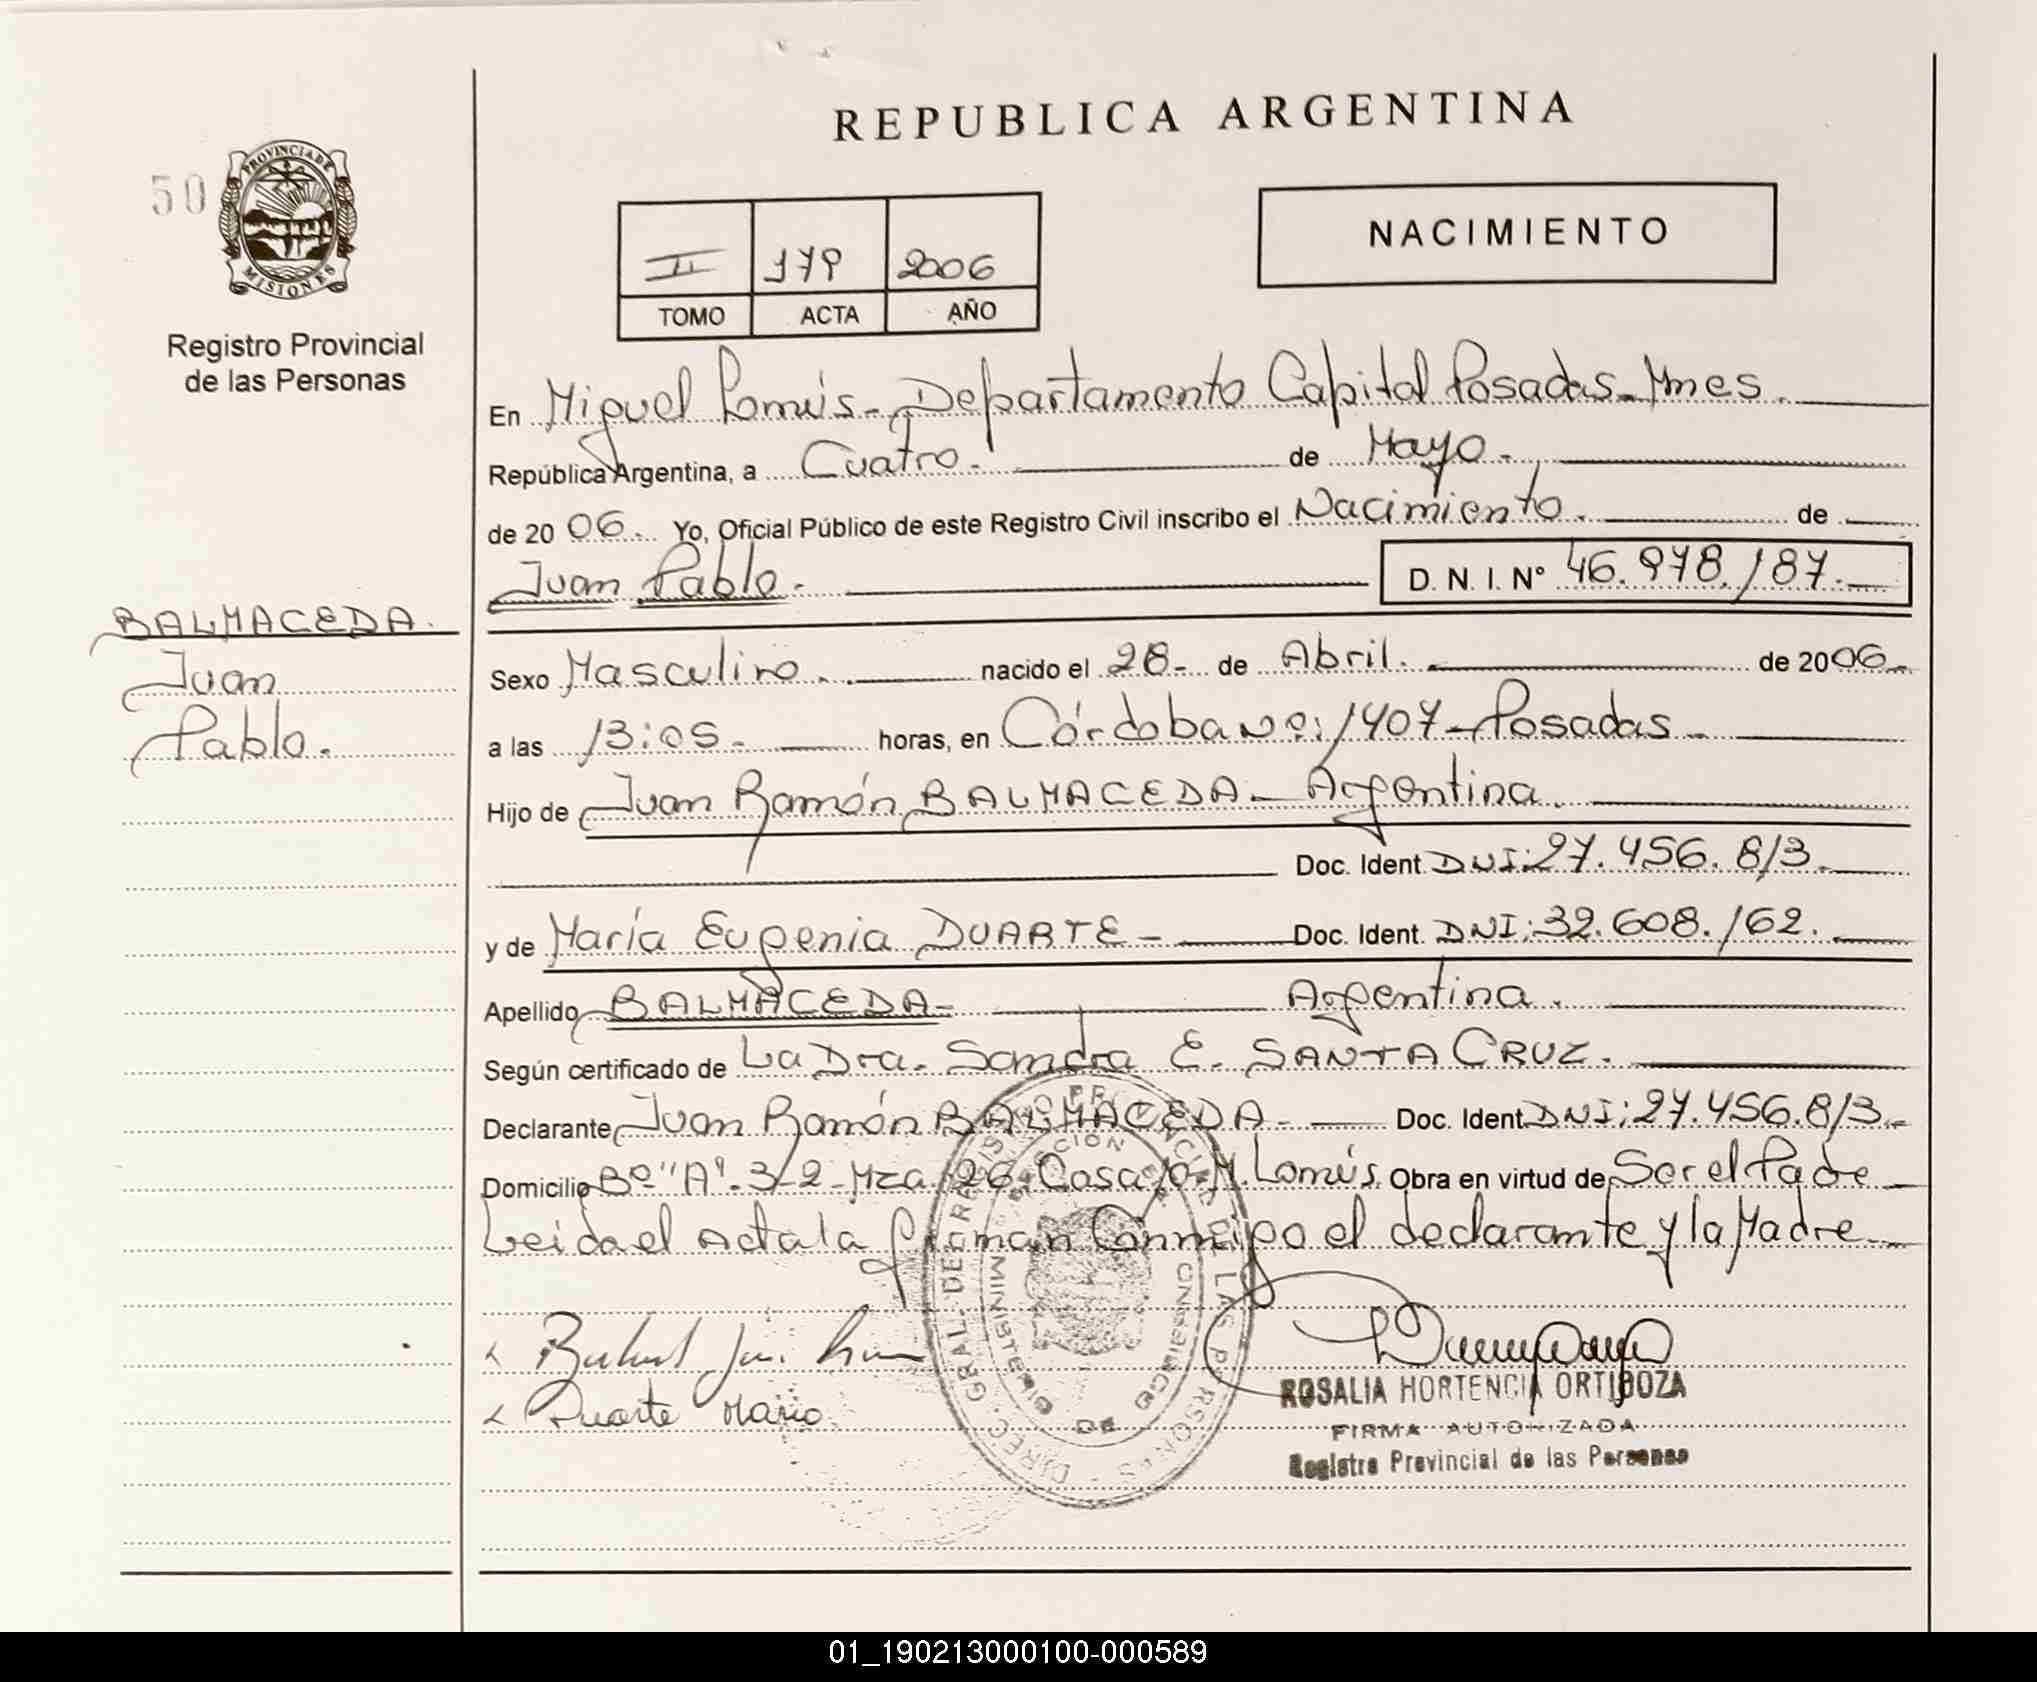 REPUBLICA ARGENTINA
50
PROVINCIA DE
MISIONES
Registro Provincial
de las Personas
NACIMIENTO
II 179 2006
TOMO ACTA AÑO
En Miguel Lanús - Departamento Capital Posadas - Mnes.
República Argentina, a Cuatro. de Mayo.
de 20 06. Yo, Oficial Público de este Registro Civil inscribo el Nacimiento. de
Juan Pablo. D. N. I. N° 46.978.187.
BALMACEDA.
Juan
Pablo.
Sexo Masculino. nacido el 28 - de Abril. de 2006.
a las 13:05 - horas, en Córdoba Nº: 1407 - Posadas -
Hijo de Juan Ramón BALMACEDA - Argentina.
Doc. Ident. DNI: 27.456.813.
y de María Eugenia DUARTE - Doc. Ident. DNI: 32.608.162.
Apellido BALMACEDA - Argentina.
Según certificado de La Dra. Sandra E. SANTA CRUZ.
Declarante Juan Ramón BALMACEDA - Doc. Ident. DNI: 27.456.813 -
Domicilio Bº "A" - 3-2 - Mza 126 - Casa 10 - M. Lanús. Obra en virtud de Ser el Padre
Leida el Acta la firman Conmigo el declarante y la Madre
Duarte Maria
ROSALIA HORTENCIA ORTIBOZA
FIRMA AUTORIZADA
Registro Provincial de las Personas
01_190213000100-000589